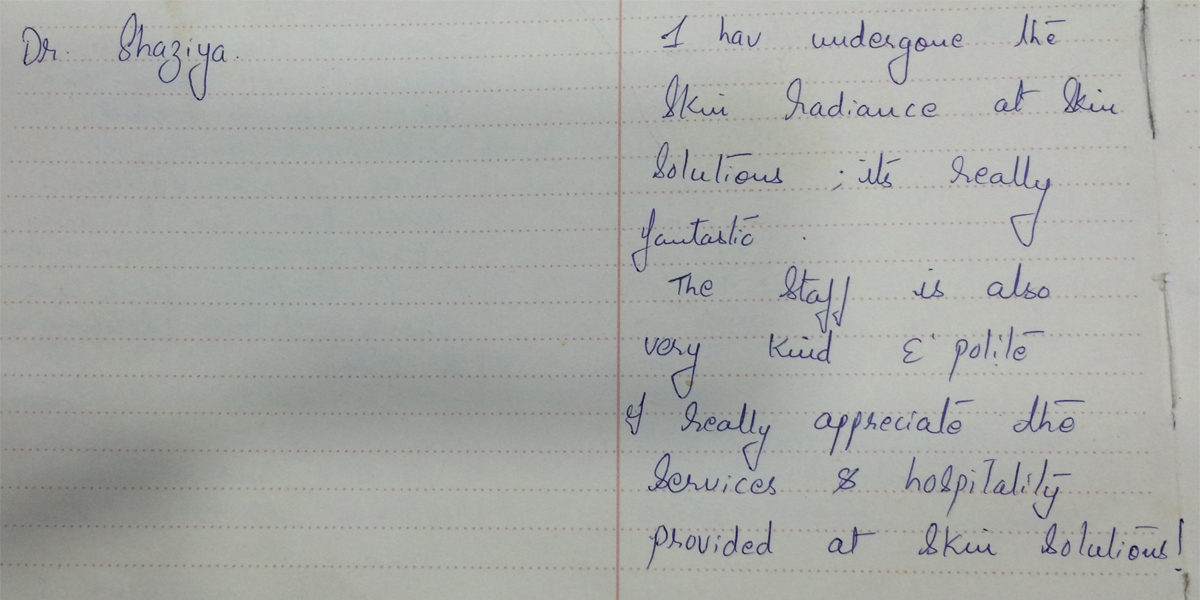 Dr. Shaziya.
I hav undergone the
Skin Radiance at Skin
Solutions ; its really
fantastic .
The Staff is also
very kind & polite
I really appreciate the
Services & hospitality
provided at Skin Solutions!